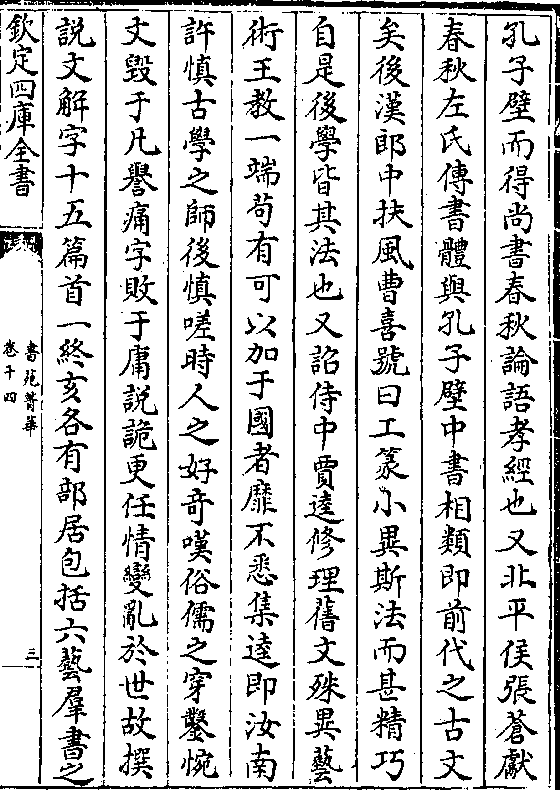 孔子壁而得尚書春秋論語孝經也又北平侯張蒼獻
春秋左氏傳書體與孔子壁中書相類即前代之古文
矣後漢郎中扶風曹喜號曰工篆小異斯法而甚精巧
自是後學皆其法也又詔侍中賈逵修理舊文殊異藝
術王教一端苟有可以加于國者靡不悉集逵即汝南
許慎古學之師後慎嗟時人之好奇嘆俗儒之穿鑿惋
文毀于凡譽痛字敗于庸說詭更任情變亂於世故撰
說文解字十五篇首一終亥各有部居包括六藝羣書之
欽定四庫全書
書苑菁華
卷十四
三